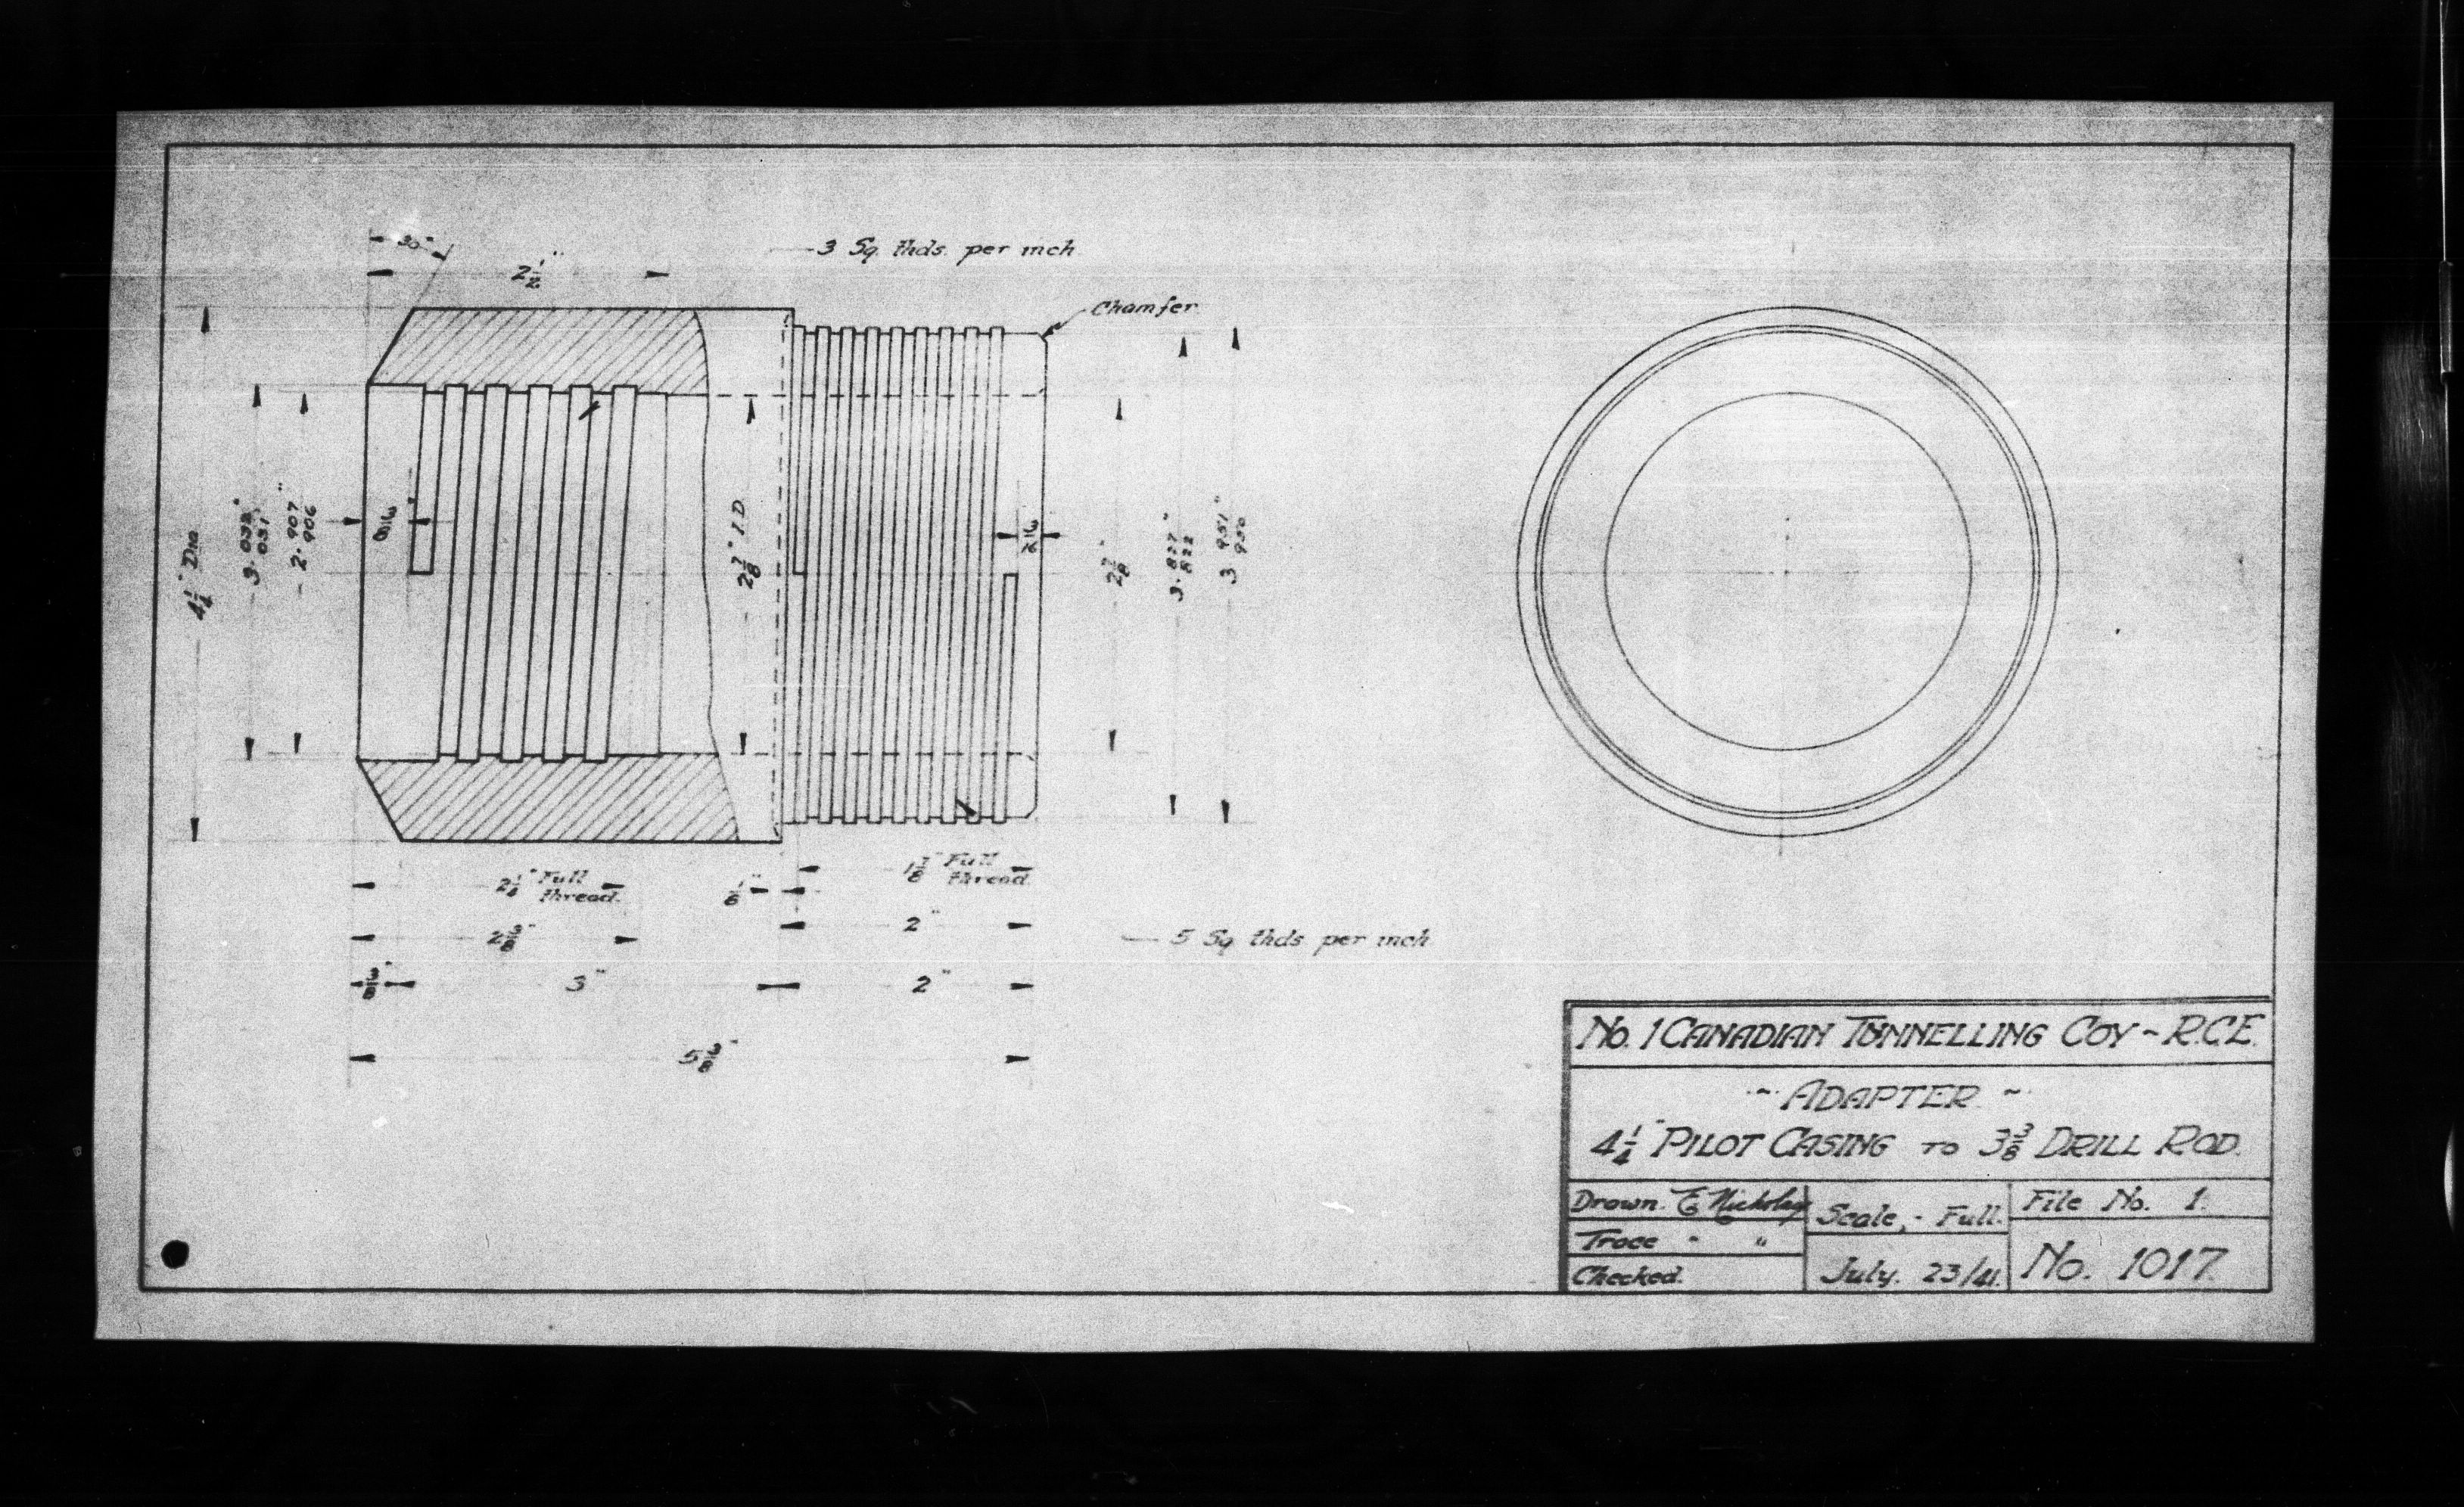 30°
2½"
3 Sq. thds. per inch
Chamfer
4¼" Dia.
3.032"
.031
2.907"
.906
3/8
2⅞" I.D.
3/16
2⅞"
3.827"
822
3 951"
950
2¼" Full
thread.
⅛"
1⅞" Full
thread.
2⅜"
2"
5 Sq thds per inch
⅜"
3"
2"
5⅜"
No. 1 CANADIAN TUNNELLING COY ~ R.C.E.
~ ADAPTER ~
4¼" PILOT CASING TO 3⅜ DRILL ROD.
Drawn. E Nicholay
Scale,- Full.
File No. 1.
Trace " "
Checked.
July. 23/41.
No. 1017.